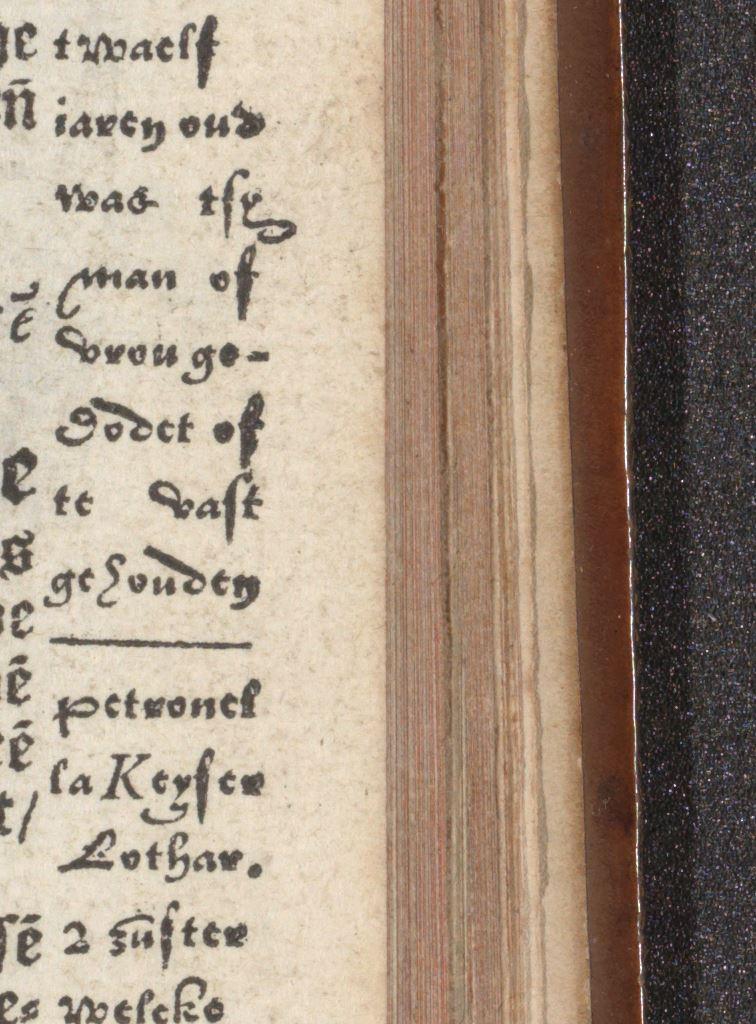 twaelf
iaren oud
was tsy
man of
vrou ge-
dodet of
te vast
gehouden
petronel
la Keyser
Lothar.
2 zuster
welcke